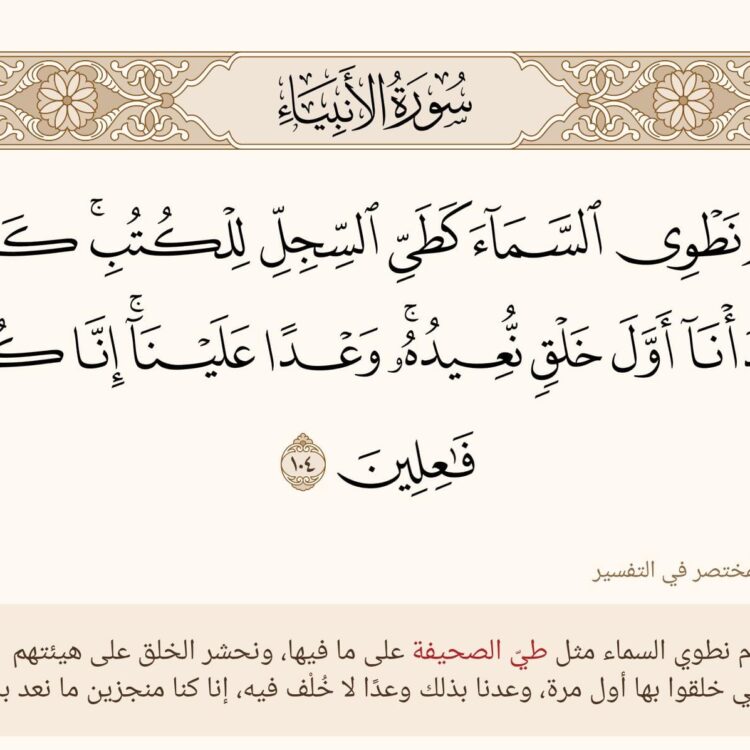 سُورَةُ الأَنبِيَاءِ
نَطْوِى ٱلسَّمَآءَ كَطَىِّ ٱلسِّجِلِّ لِلْكُتُبِ ۚ كَـ
دَأْنَآ أَوَّلَ خَلْقٍ نُّعِيدُهُۥ ۚ وَعْدًا عَلَيْنَآ ۚ إِنَّا كُـ
فَـٰعِلِينَ ١٠٤
مختصر في التفسير
م نطوي السماء مثل طيّ الصحيفة على ما فيها، ونحشر الخلق على هيئتهم
ي خلقوا بها أول مرة، وعدنا بذلك وعدًا لا خُلْف فيه، إنا كنا منجزين ما نعد بـ